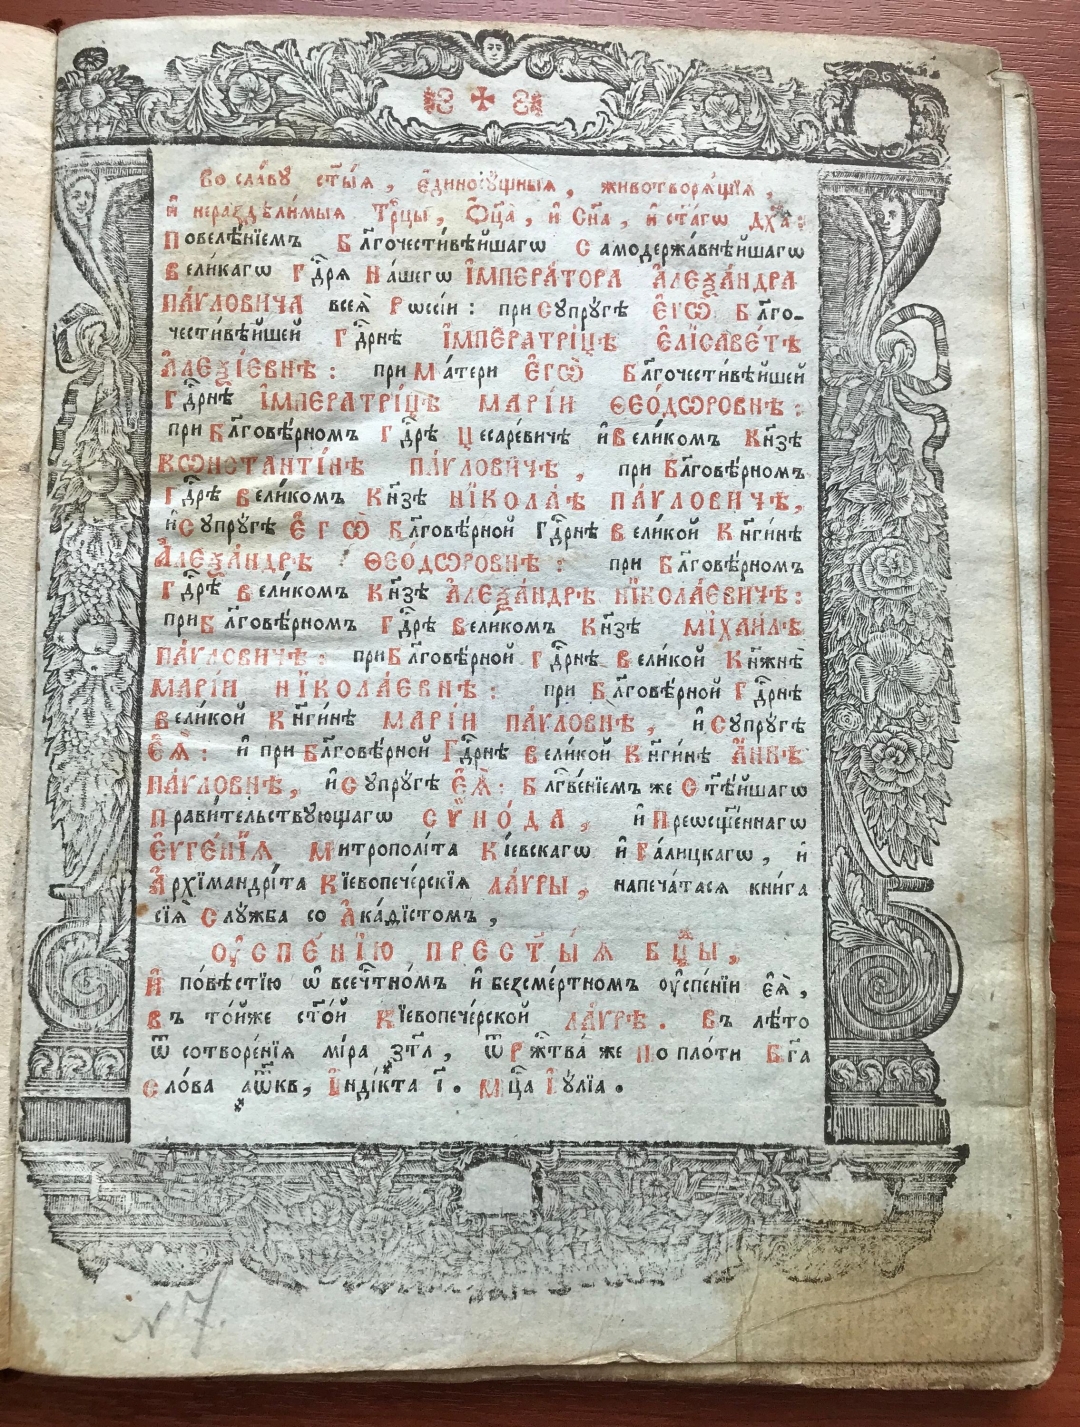 Во сла́ву ст҃ы́ѧ, є҆диносꙋ́щныѧ, животворѧ́щїѧ,
и҆ нераздѣли́мыѧ Трⷪ҇цы, Ѻ҆ц҃а̀, и҆ Сн҃а, и҆ ст҃а́гѡ Дх҃а:
Повелѣ́нїемъ Бл҃гочести́вѣйшагѡ Самодержа́внѣйшагѡ
Вели́кагѡ Гдⷭ҇рѧ На́шегѡ І҆МПЕРА́ТОРА А҆ЛЕѮА́НДРА
ПА́ѴЛОВИЧА всеѧ̀ Рѡссі́и: при Сꙋпрꙋ́гѣ Є҆ГѠ̀ Бл҃го-
чести́вѣйшей Гдⷭ҇рнѣ І҆МПЕРАТРІ́ЦѢ Є҆ЛІСАВЕ́ТѢ
А҆ЛЕѮІ́ЕВНѢ: при Ма́тери Є҆ГѠ̀ Бл҃гочести́вѣйшей
Гдⷭ҇рнѣ І҆МПЕРАТРІ́ЦѢ МАРІ́И ѲЕО́ДѠРОВНѢ:
при Бл҃говѣ́рномъ Гдⷭ҇рѣ Цесаре́вичѣ и҆ Вели́комъ Кн҃зѣ
КѠНСТАНТІ́НѢ ПА́ѴЛОВИЧѢ, при Бл҃говѣ́рномъ
Гдⷭ҇рѣ Вели́комъ Кн҃зѣ НЇКОЛА́Ѣ ПА́ѴЛОВИЧѢ,
и҆ Сꙋпрꙋ́гѣ Є҆ГѠ̀ Бл҃говѣ́рной Гдⷭ҇рнѣ Вели́кой Кн҃ги́нѣ
А҆ЛЕѮА́НДРѢ ѲЕО́ДѠРОВНѢ: при Бл҃говѣ́рномъ
Гдⷭ҇рѣ Вели́комъ Кн҃зѣ А҆ЛЕѮА́НДРѢ НЇКОЛА́ЕВИЧѢ:
при Бл҃говѣ́рномъ Гдⷭ҇рѣ Вели́комъ Кн҃зѣ МІХАИ́ЛѢ
ПА́ѴЛОВИЧѢ: при Бл҃говѣ́рной Гдⷭ҇рнѣ Вели́кой Кн҃жнѣ̀
МАРІ́И НЇКОЛА́ЕВНѢ: при Бл҃говѣ́рной Гдⷭ҇рнѣ
Вели́кой Кн҃ги́нѣ МАРІ́И ПА́ѴЛОВНѢ, и҆ Сꙋпрꙋ́гѣ
Є҆Ѧ̀: и҆ при Бл҃говѣ́рной Гдⷭ҇рнѣ Вели́кой Кн҃ги́нѣ А҆́ННѢ
ПА́ѴЛОВНѢ, и҆ Сꙋпрꙋ́гѣ Є҆Ѧ̀: Бл҃гве́нїемъ же Ст҃ѣ́йшагѡ
Прави́тельствꙋющагѡ СѴНО́ДА, и҆ Преѡсщ҃е́ннагѡ
ЕѴГЕ́НЇѦ Митрополі́та Кі́евскагѡ и҆ Га́лицкагѡ, и҆
А҆рхїмандрі́та Кїевопече́рскїѧ ЛА́ѴРЫ, напеча́тасѧ кни́га
сїѧ̀ Слꙋ́жба со А҆ка́ѳїстомъ,
ОУ҆СПЕ́НЇЮ ПРЕСТ҃Ы́Ѧ БЦ҃Ы,
И҆ по́вѣстїю ѡ҆ всечⷭ҇тно́мъ и҆ безсме́ртномъ ᲂу҆спе́нїи є҆ѧ̀,
Въ то́йже ст҃о́й Кїевопече́рской ЛА́ѴРѢ. Въ лѣ́то
ѿ сотворе́нїѧ мі́ра ҂зт҃л, ѿ Ржⷭ҇тва́ же По пло́ти Бг҃а
Сло́ва ҂аѿкв, І҆нді́кта і҃. Мцⷭ҇а І҆ꙋ́лїа.
№ 7.